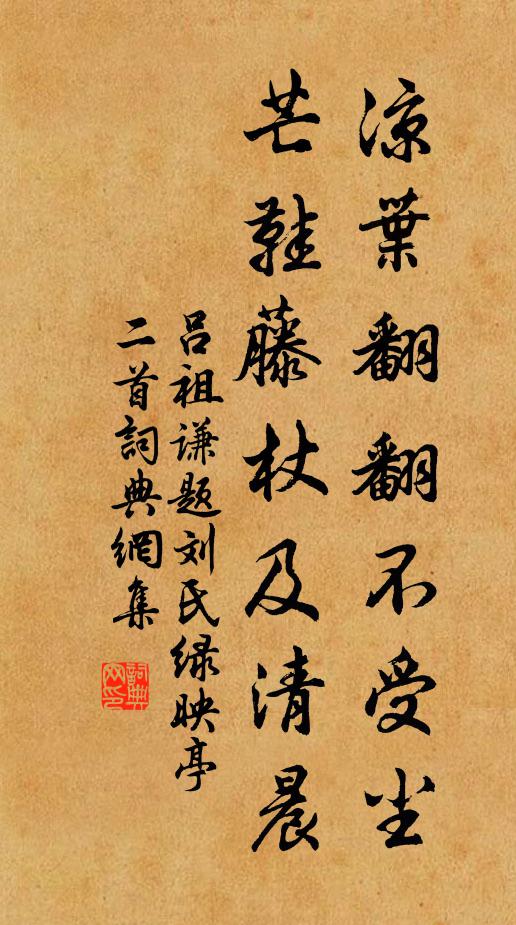 凉葉翻翻不受尘
芒鞋藤杖及清晨
吕祖谦题刘氏绿映亭
二首詞典網集
詞典网印